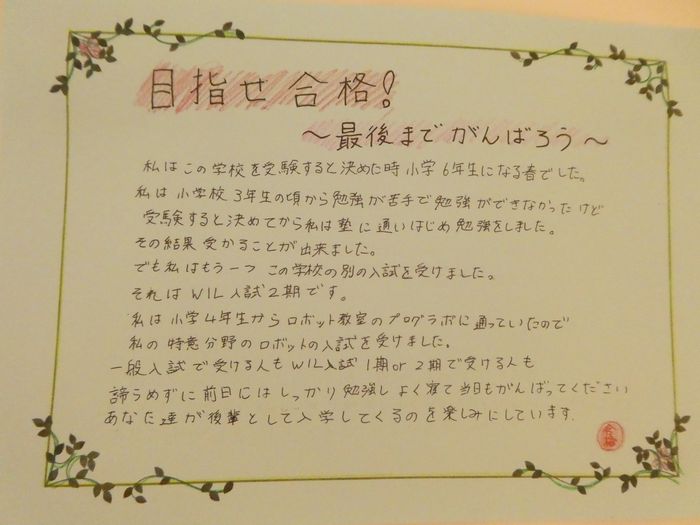 目指せ合格!
～最後までがんばろう～
私はこの学校を受験すると決めた時小学6年生になる春でした。
私は小学校3年生の頃から勉強が苦手で勉強ができなかったけど
受験すると決めてから私は塾に通いはじめ勉強をしました。
その結果受かることが出来ました。
でも私はもう一つこの学校の別の入試を受けました。
それはWIL入試2期です。
私は小学4年生からロボット教室のプログラボに通っていたので
私の特意分野のロボットの入試を受けました。
一般入試で受ける人もWIL入試1期or2期で受ける人も
諦うめずに前日にはしっかり勉強しよく寝て当日もがんばってください
あなた達が後輩として入学してくるのを楽しみにしています.
合格